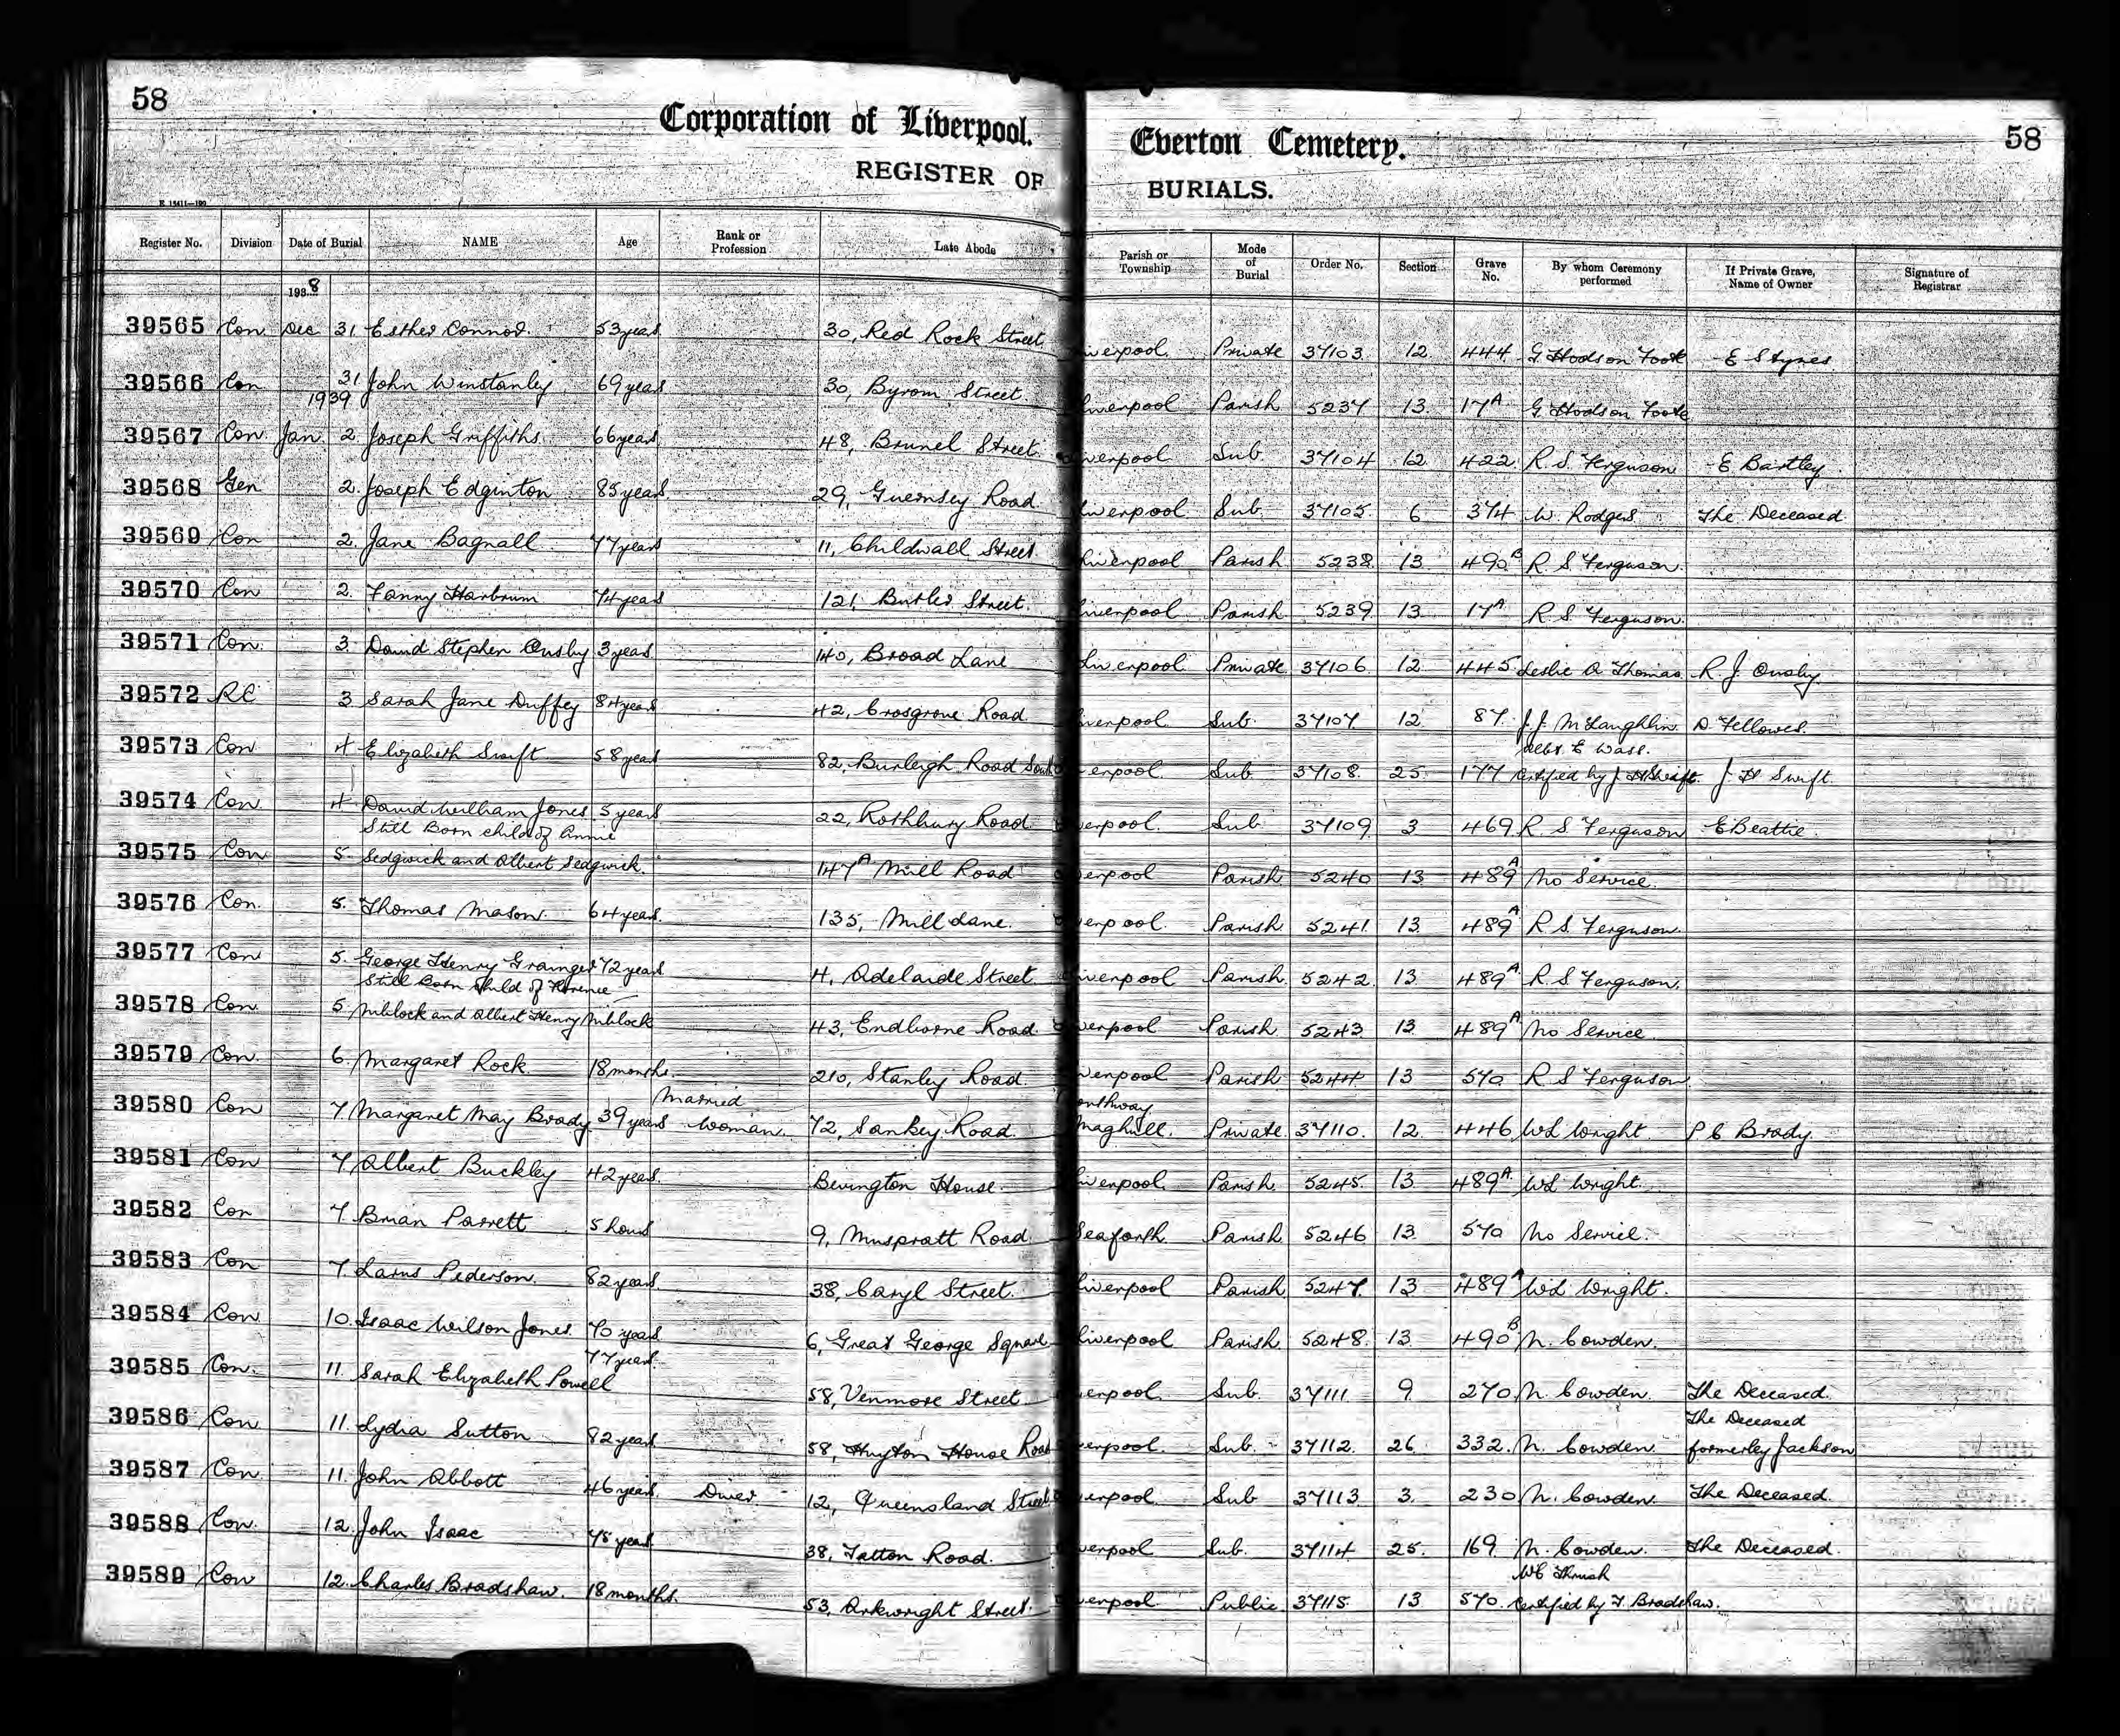 58
Corporation of Liverpool. Everton Cemetery.
58
REGISTER OF BURIALS.
Register No. Division Date of Burial NAME Age Rank or Profession Late Abode Parish or Township Mode of Burial Order No. Section Grave No. By whom Ceremony performed If Private Grave, Name of Owner Signature of Registrar
1938
39565 Con. Dec. 31 Esther Connor. 53 years 30, Red Rock Street. Liverpool. Private 37103 12 444 G. Hodson Foote E Stynes.
39566 Con 31 John Winstanley 69 years 30, Byrom Street. Liverpool Parish 5237 13 17A G. Hodson Foote
1939
39567 Con Jan. 2 Joseph Griffiths. 66 years 48, Brunel Street. Liverpool Sub. 37104 12 422 R. S. Ferguson E Bartley
39568 Gen 2. Joseph Edginton 85 years 29, Guernsey Road. Liverpool Sub. 37105 6 374 W. Rodgers The Deceased
39569 Con 2. Jane Bagnall 77 years 11, Childwall Street. Liverpool Parish 5238 13 490B R. S. Ferguson.
39570 Con 2. Fanny Harbrum 74 years 121, Butler Street. Liverpool Parish 5239 13 17A R. S. Ferguson.
39571 Con. 3. David Stephen Ousby 3 years 140, Broad Lane Liverpool Private 37106 12 445 Leslie A Thomas R. J. Ousby
39572 RC 3 Sarah Jane Duffey 84 years 42, Crosgrove Road Liverpool Sub. 37107 12 87 J. J. McLaughlin. D. Fellowes.
39573 Con 4 Elizabeth Swift 58 years 82, Burleigh Road South Liverpool. Sub. 37108. 25 177 E Wass. Certified by J H Swift. J H Swift.
39574 Con 4. David William Jones 5 years 22, Rothbury Road Liverpool. Sub. 37109 3 469 R. S. Ferguson E Beattie.
Still Born child of Annie
39575 Con 5 Sedgwick and Albert Sedgwick. 147A Mill Road Liverpool Parish 5240 13 489A No Service.
39576 Con. 5. Thomas Mason. 64 years. 135, Mill Lane. Liverpool. Parish 5241. 13 489A R. S. Ferguson.
39577 Con 5. George Henry Grainger 72 years 4, Adelaide Street. Liverpool Parish 5242. 13 489A R. S. Ferguson.
Still Born Child of Florence
39578 Con. 5. Niblock and Albert Henry Niblock 43, Endborne Road Liverpool Parish 5243 13 489A No Service
39579 Con. 6. Margaret Rock 18 months. 210, Stanley Road. Liverpool Parish 5244 13 570 R S Ferguson
39580 Con 7. Margaret May Brady 39 years Married Woman. 72, Sankey Road. Northway Maghull. Private 37110. 12. 446 W L Wright P C Brady.
39581 Con 7. Albert Buckley 42 years. Bevington House. Liverpool Parish. 5245. 13 489A. W L Wright.
39582 Con 7. Brian Parrett 5 hours 9, Muspratt Road. Seaforth. Parish 5246 13. 570 No Service.
39583 Con 7. Larus Pederson. 82 years. 38, Caryl Street. Liverpool Parish 5247. 13 489A W L Wright.
39584 Con 10. Isaac Wilson Jones. 70 years 6, Great George Square Liverpool Parish 5248. 13 490B N. Cowden.
39585 Con. 11. Sarah Elizabeth Powell 77 years. 58, Venmore Street Liverpool Sub. 37111 9 270 N. Cowden. The Deceased.
39586 Con 11. Lydia Sutton 82 years 58, Huyton House Road Liverpool. Sub. 37112. 26 332. N. Cowden. The Deceased formerley Jackson
39587 Con 11. John Abbott 46 years. Diver. 12, Queensland Street Liverpool. Sub 37113 3. 230 N. Cowden. The Deceased.
39588 Con. 12. John Isaac 75 years. 38, Tatton Road. Liverpool Sub. 37114 25. 169 N. Cowden. The Deceased.
39589 Con 12. Charles Bradshaw. 18 months. 53, Arkwright Street. Liverpool Public 37115 13 570. W C Thrush Certified by T Bradshaw.